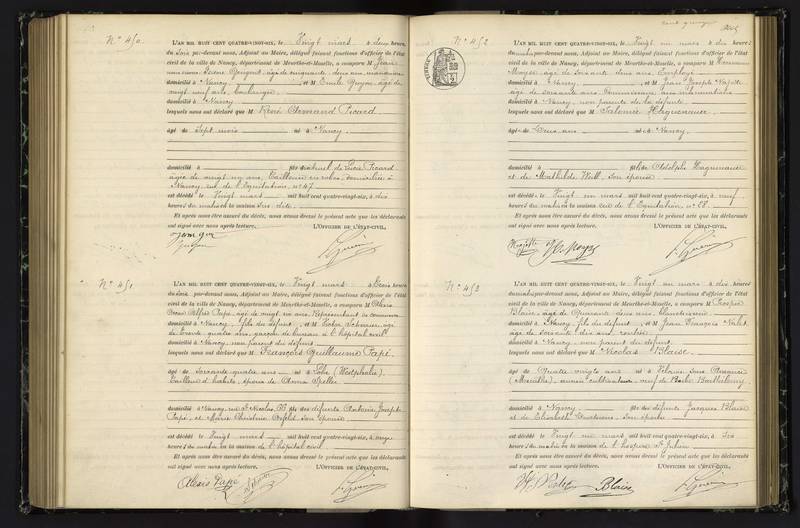 N° 450
L'AN MIL HUIT CENT QUATRE-VINGT-SIX, le Vingt mars à deux heures
du soir par-devant nous, Adjoint au Maire, délégué faisant fonctions d'officier de l'état
civil de la ville de Nancy, département de Meurthe-et-Moselle, a comparu M
âgé de cinquante deux ans
domicilié à Nancy et M Emile Guyon, âgé de
vingt neuf ans, boulanger
domicilié à Nancy
lesquels nous ont déclaré que M René Armand Picard
âgé de Sept mois né à Nancy
domicilié à fils naturel de Lucie Picard
âgée de vingt un ans, tailleuse en robes, domiciliée à
Nancy, rue de l'Equitation, n° 47
est décédé le Vingt mars mil huit cent quatre-vingt-six, à dix
heures du matin en la maison sus dite.
Et après nous être assuré du décès, nous avons dressé le présent acte que les déclarants
ont signé avec nous après lecture. L'OFFICIER DE L'ÉTAT-CIVIL,
N° 451
L'AN MIL HUIT CENT QUATRE-VINGT-SIX, le Vingt mars à trois heures
du soir par-devant nous, Adjoint au Maire, délégué faisant fonctions d'officier de l'état
civil de la ville de Nancy, département de Meurthe-et-Moselle, a comparu M Alexis
Alfred Papé, âgé de vingt six ans, Représentant de commerce
domicilié à Nancy, fils du défunt, et M Victor Schreiner, âgé
de trente quatre ans, garçon de bureau à l'hôpital civil
domicilié à Nancy, non parent du défunt
lesquels nous ont déclaré que M François Guillaume Papé
âgé de soixante quatre ans né à (Westphalie).
tailleur d'habits, époux de Anna Speller
domicilié à Nancy, rue St Nicolas, fils des défunts Antoine Joseph
Papé, et Marie Christine son épouse
est décédé le Vingt mars mil huit cent quatre-vingt-six, à onze
heures du matin en la maison de l'hôpital civil
Et après nous être assuré du décès, nous avons dressé le présent acte que les déclarants
ont signé avec nous après lecture. L'OFFICIER DE L'ÉTAT-CIVIL,
Alexis Papé
N° 452
L'AN MIL HUIT CENT QUATRE-VINGT-SIX, le Vingt un mars à dix heures
du matin par-devant nous, Adjoint au Maire, délégué faisant fonctions d'officier de l'état
civil de la ville de Nancy, département de Meurthe-et-Moselle, a comparu M
Moyse, âgé de soixante deux ans, Employé
domicilié à Nancy, et M Jean Joseph
âgé de soixante ans
domicilié à Nancy, non parents de la défunte
lesquels nous ont déclaré que M Salomée Haguenauer
âgée de Deux ans née à Nancy
domicilié à fille de Adolphe Haguenauer
et de Mathilde Weill, son épouse
est décédée le Vingt un mars mil huit cent quatre-vingt-six, à neuf
heures du matin en la maison rue de l'Equitation, n° 68
Et après nous être assuré du décès, nous avons dressé le présent acte que les déclarants
ont signé avec nous après lecture. L'OFFICIER DE L'ÉTAT-CIVIL,
N° 453
L'AN MIL HUIT CENT QUATRE-VINGT-SIX, le Vingt un mars à dix heures
du matin par-devant nous, Adjoint au Maire, délégué faisant fonctions d'officier de l'état
civil de la ville de Nancy, département de Meurthe-et-Moselle, a comparu M Prosper
Blaise, âgé de Quarante deux ans
domicilié à Nancy, fils du défunt, et M Jean François Nalet
âgé de soixante dix ans, rentier
domicilié à Nancy, non parent du défunt
lesquels nous ont déclaré que M Nicolas Blaise
âgé de Quatre vingts ans né à Velaine sous Amance
(Meurthe), ancien cultivateur, veuf de Barbe Barthélemy
domicilié à Nancy fils des défunts Jacques Blaise
et de Elisabeth son épouse
est décédé le Vingt un mars mil huit cent quatre-vingt-six, à six
heures du matin en la maison de l'hospice St Julien
Et après nous être assuré du décès, nous avons dressé le présent acte que les déclarants
ont signé avec nous après lecture. L'OFFICIER DE L'ÉTAT-CIVIL,
Blaise